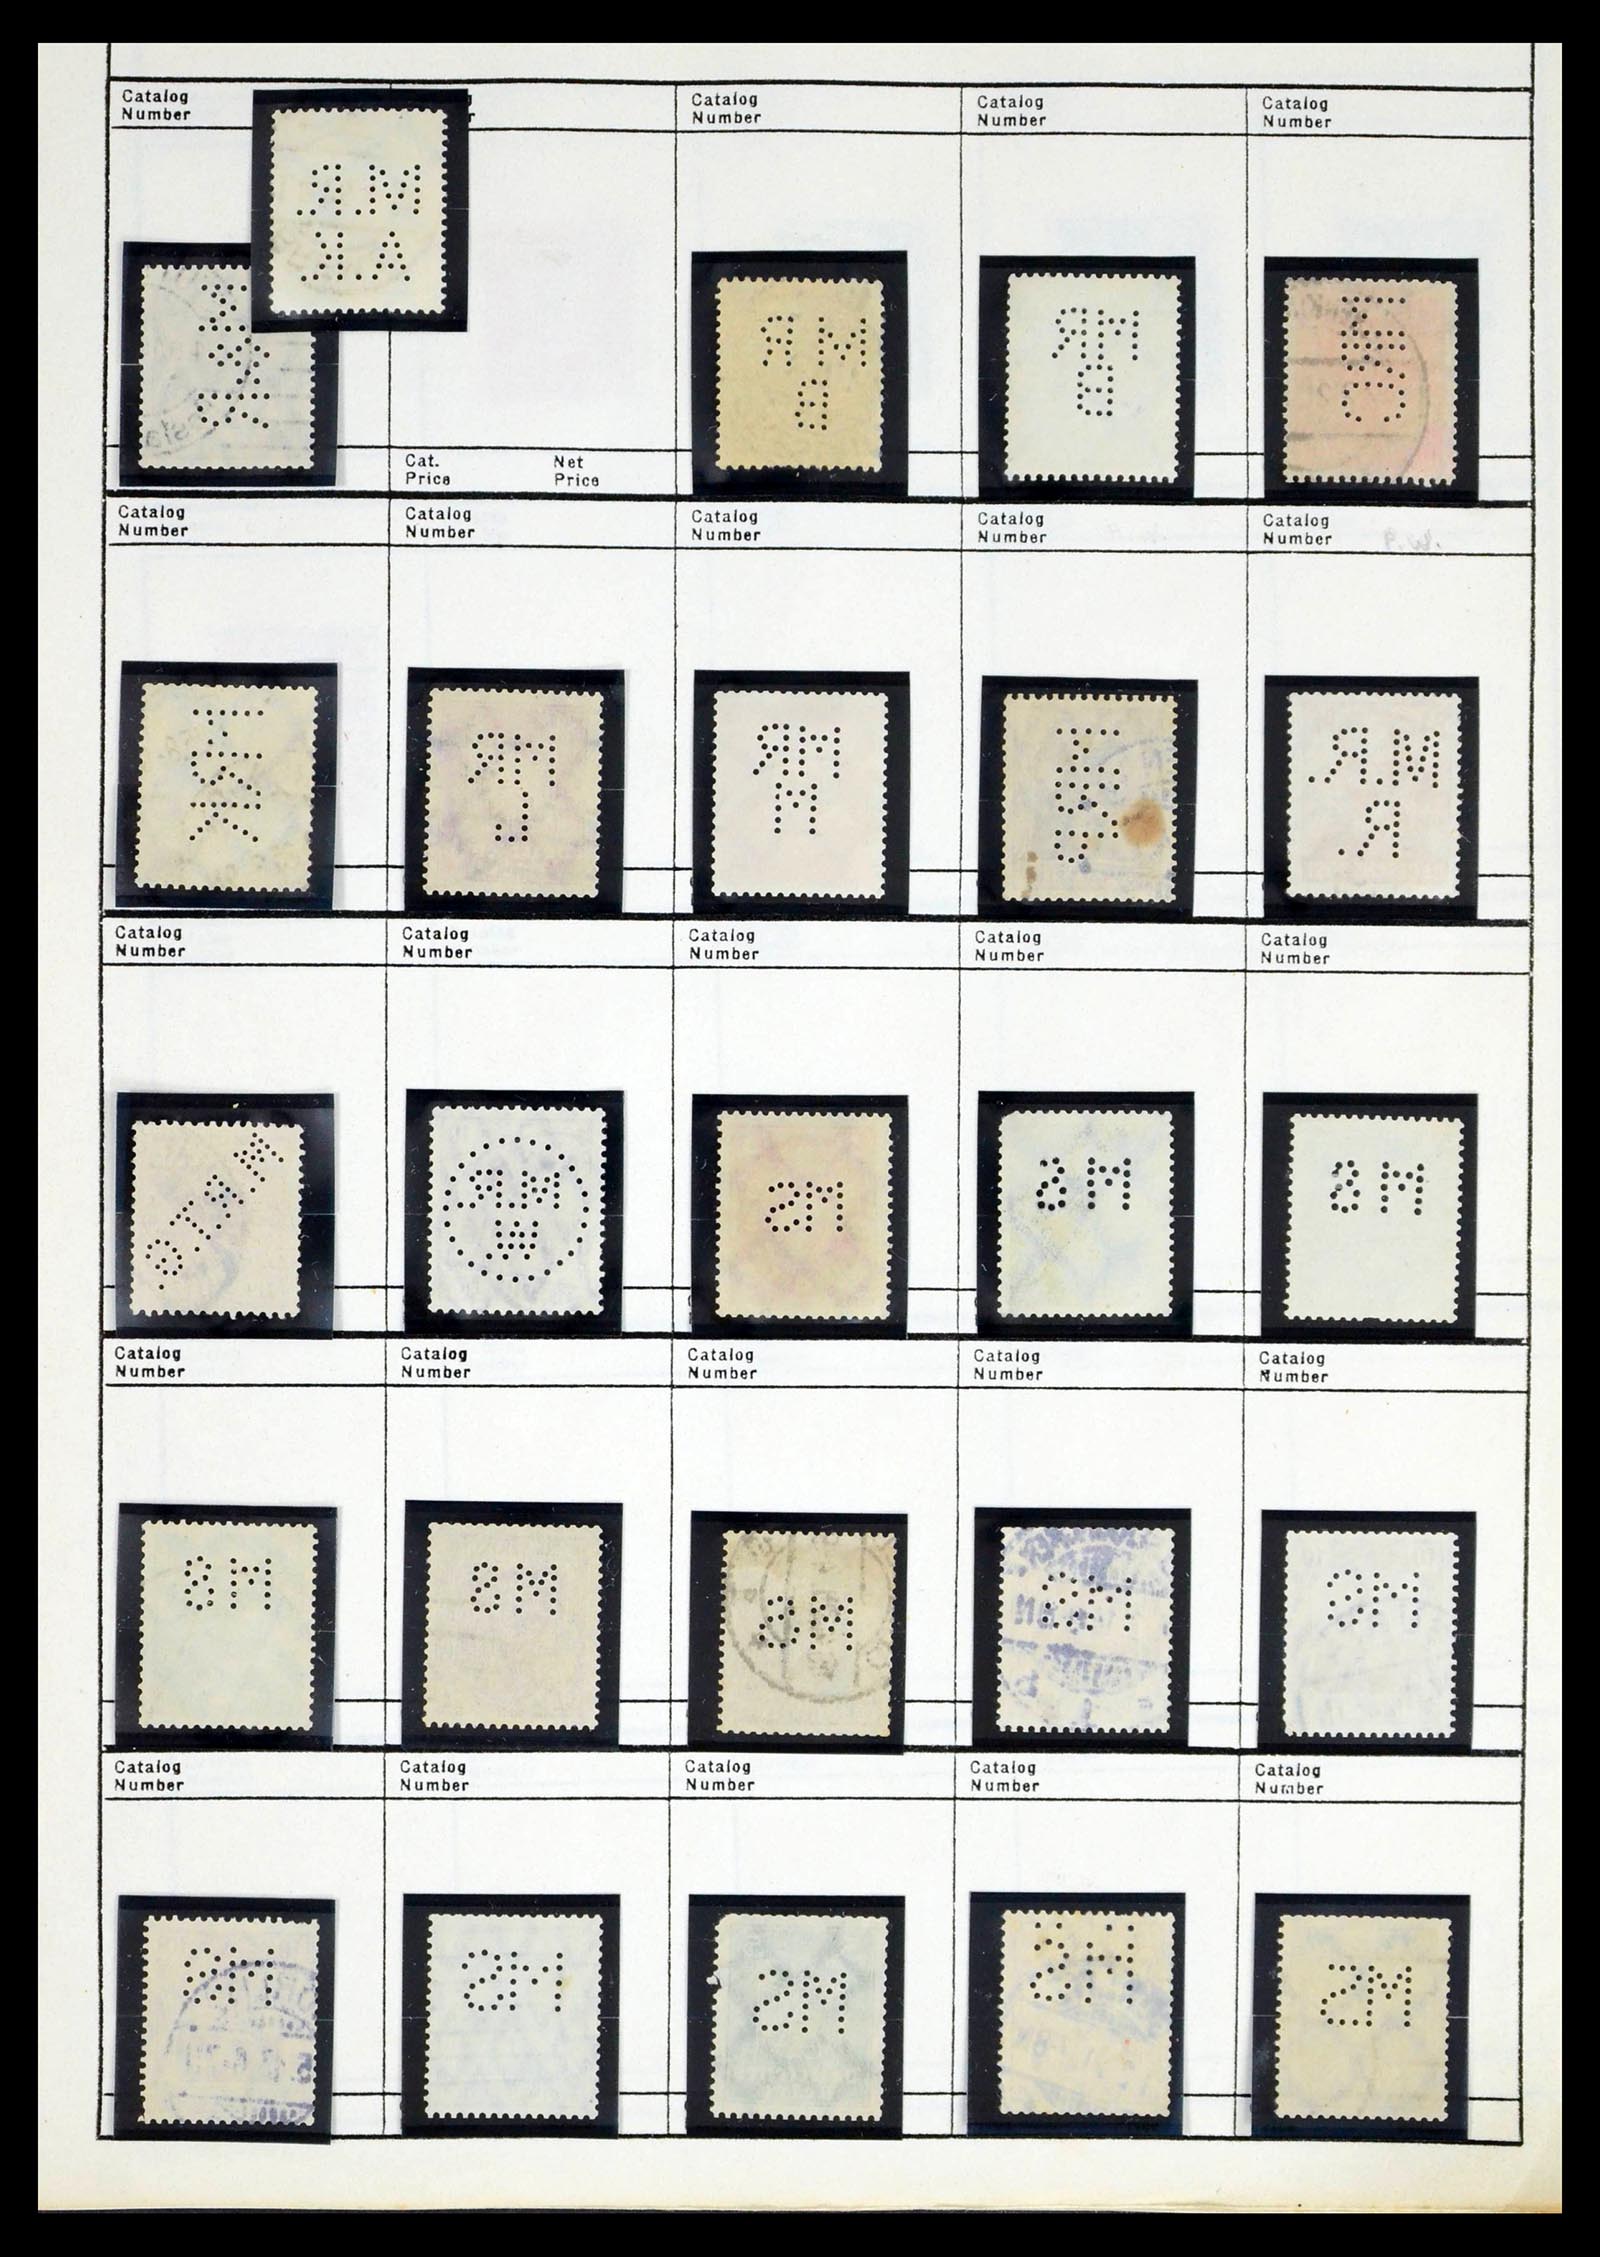 Catalog Number
Catalog Number
Catalog Number
Catalog Number
M.R.
A.K.
MR
B
MR
B
Cat. Price
Net Price
Catalog Number
Catalog Number
Catalog Number
Catalog Number
Catalog Number
MR
L
MR
M
M.R.
R.
Catalog Number
Catalog Number
Catalog Number
Catalog Number
Catalog Number
M.R.
W
MS
MS
MS
Catalog Number
Catalog Number
Catalog Number
Catalog Number
Catalog Number
MS
MS
MS
MS
MS
Catalog Number
Catalog Number
Catalog Number
Catalog Number
Catalog Number
MS
MS
MS
MS